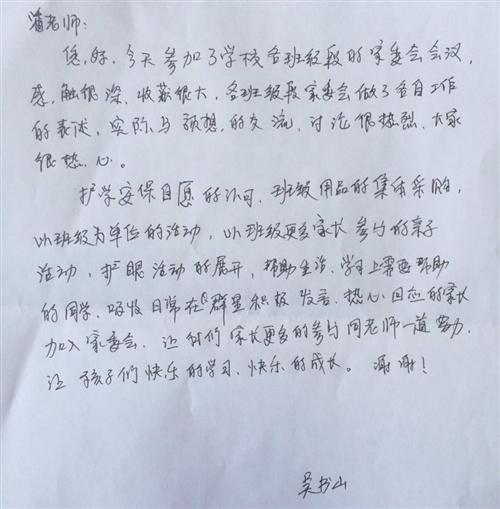 潘老师:
您好,今天参加了学校各班级段的家委会会议,
感触很深、收获很大,各班级段家委会做了各自工作
的表述,实际与预想的交流,讨论很热烈、大家
很热心。
护学安保自愿的认可、班级用品的集体采购,
以班级为单位的活动,以班级更多家长参与的亲子
活动,护眼活动的展开,帮助生活、学习上需要帮助
的同学、吸收日常在Q群里积极发言、热心回应的家长
加入家委会、让我们家长更多的参与同老师一道努力、
让孩子们快乐的学习、快乐的成长。谢谢!
吴书山